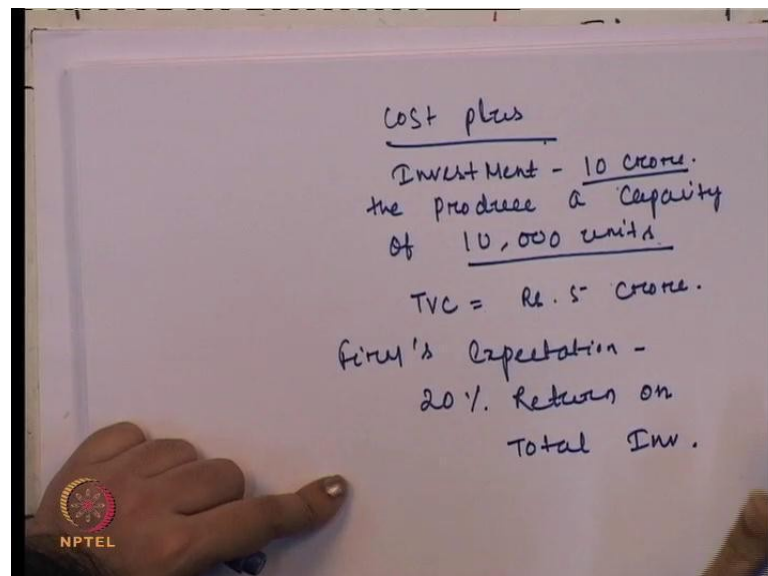 Cost plus
Investment - 10 crore.
the produce a Capacity
of 10,000 units
TVC = Rs. 5 crore.
Firm's Expectation -
20% Return on
Total Inv.
NPTEL